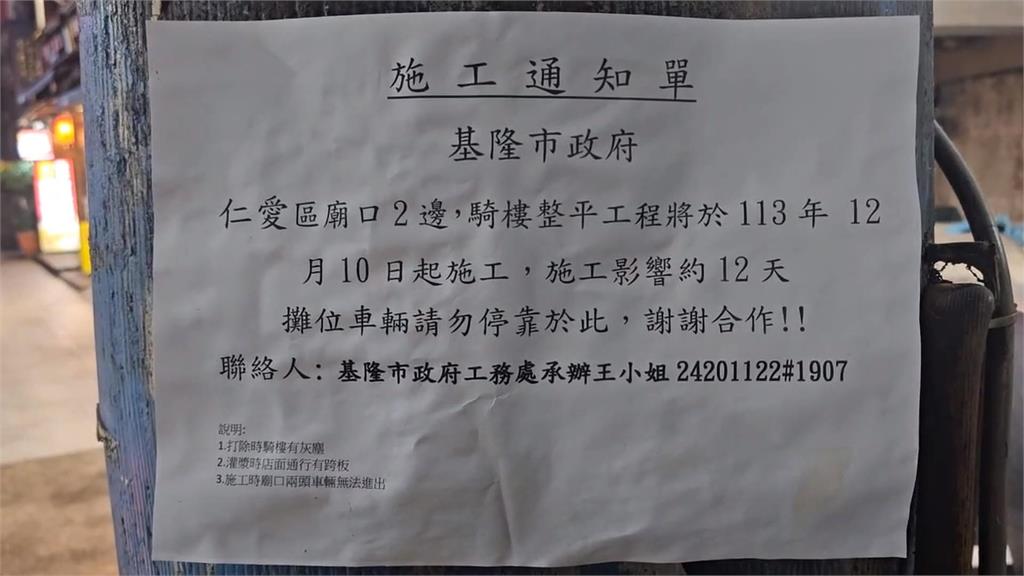 施工通知單
基隆市政府
仁愛區廟口2邊,騎樓整平工程將於113年 12
月10日起施工,施工影響約12天
攤位車輛請勿停靠於此,謝謝合作!!
聯絡人: 基隆市政府工務處承辦王小姐 24201122#1907
說明:
1.打除時騎樓有灰塵
2.灌漿時店面通行有跨板
3.施工時廟口兩頭車輛無法進出